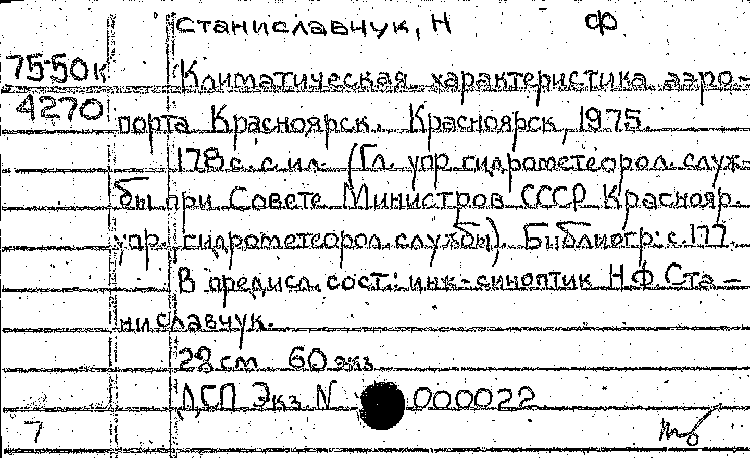 Станиславчук, Н Ф.
75-50к Климатическая характеристика аэро-
4270 порта Красноярск. Красноярск, 1975.
178 с. с ил. (Гл. упр. гидрометеорол. служ-
бы при Совете Министров СССР Краснояр.
упр. гидрометеорол. службы). Библиогр: с. 177.
В предисл. сост.: инж-синоптик Н.Ф. Ста-
ниславчук.
28 см 60 экз
ДСП Экз. N 000022
7